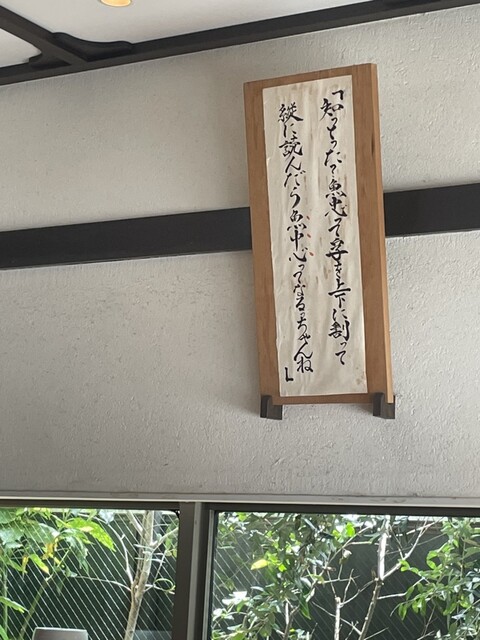 「知っとった？魚忠って字を上下に割って
縦に読んだら魚中心ってなるっちゃんね」